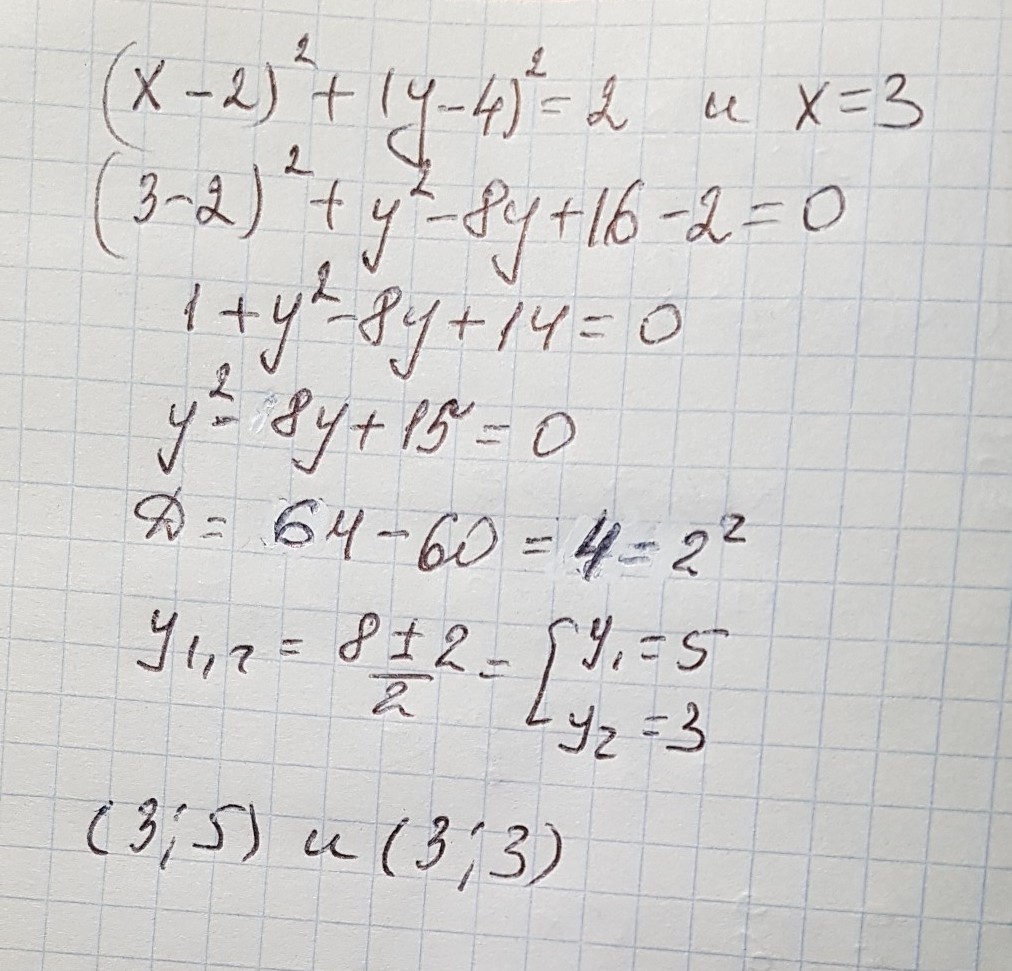 (x-2)² + (y-4)² = 2 и x=3
(3-2)² + y² - 8y + 16 - 2 = 0
1 + y² - 8y + 14 = 0
y² - 8y + 15 = 0
D = 64 - 60 = 4 = 2²
y₁,₂ = (8 ± 2)/2 = [y₁ = 5
y₂ = 3
(3; 5) и (3; 3)